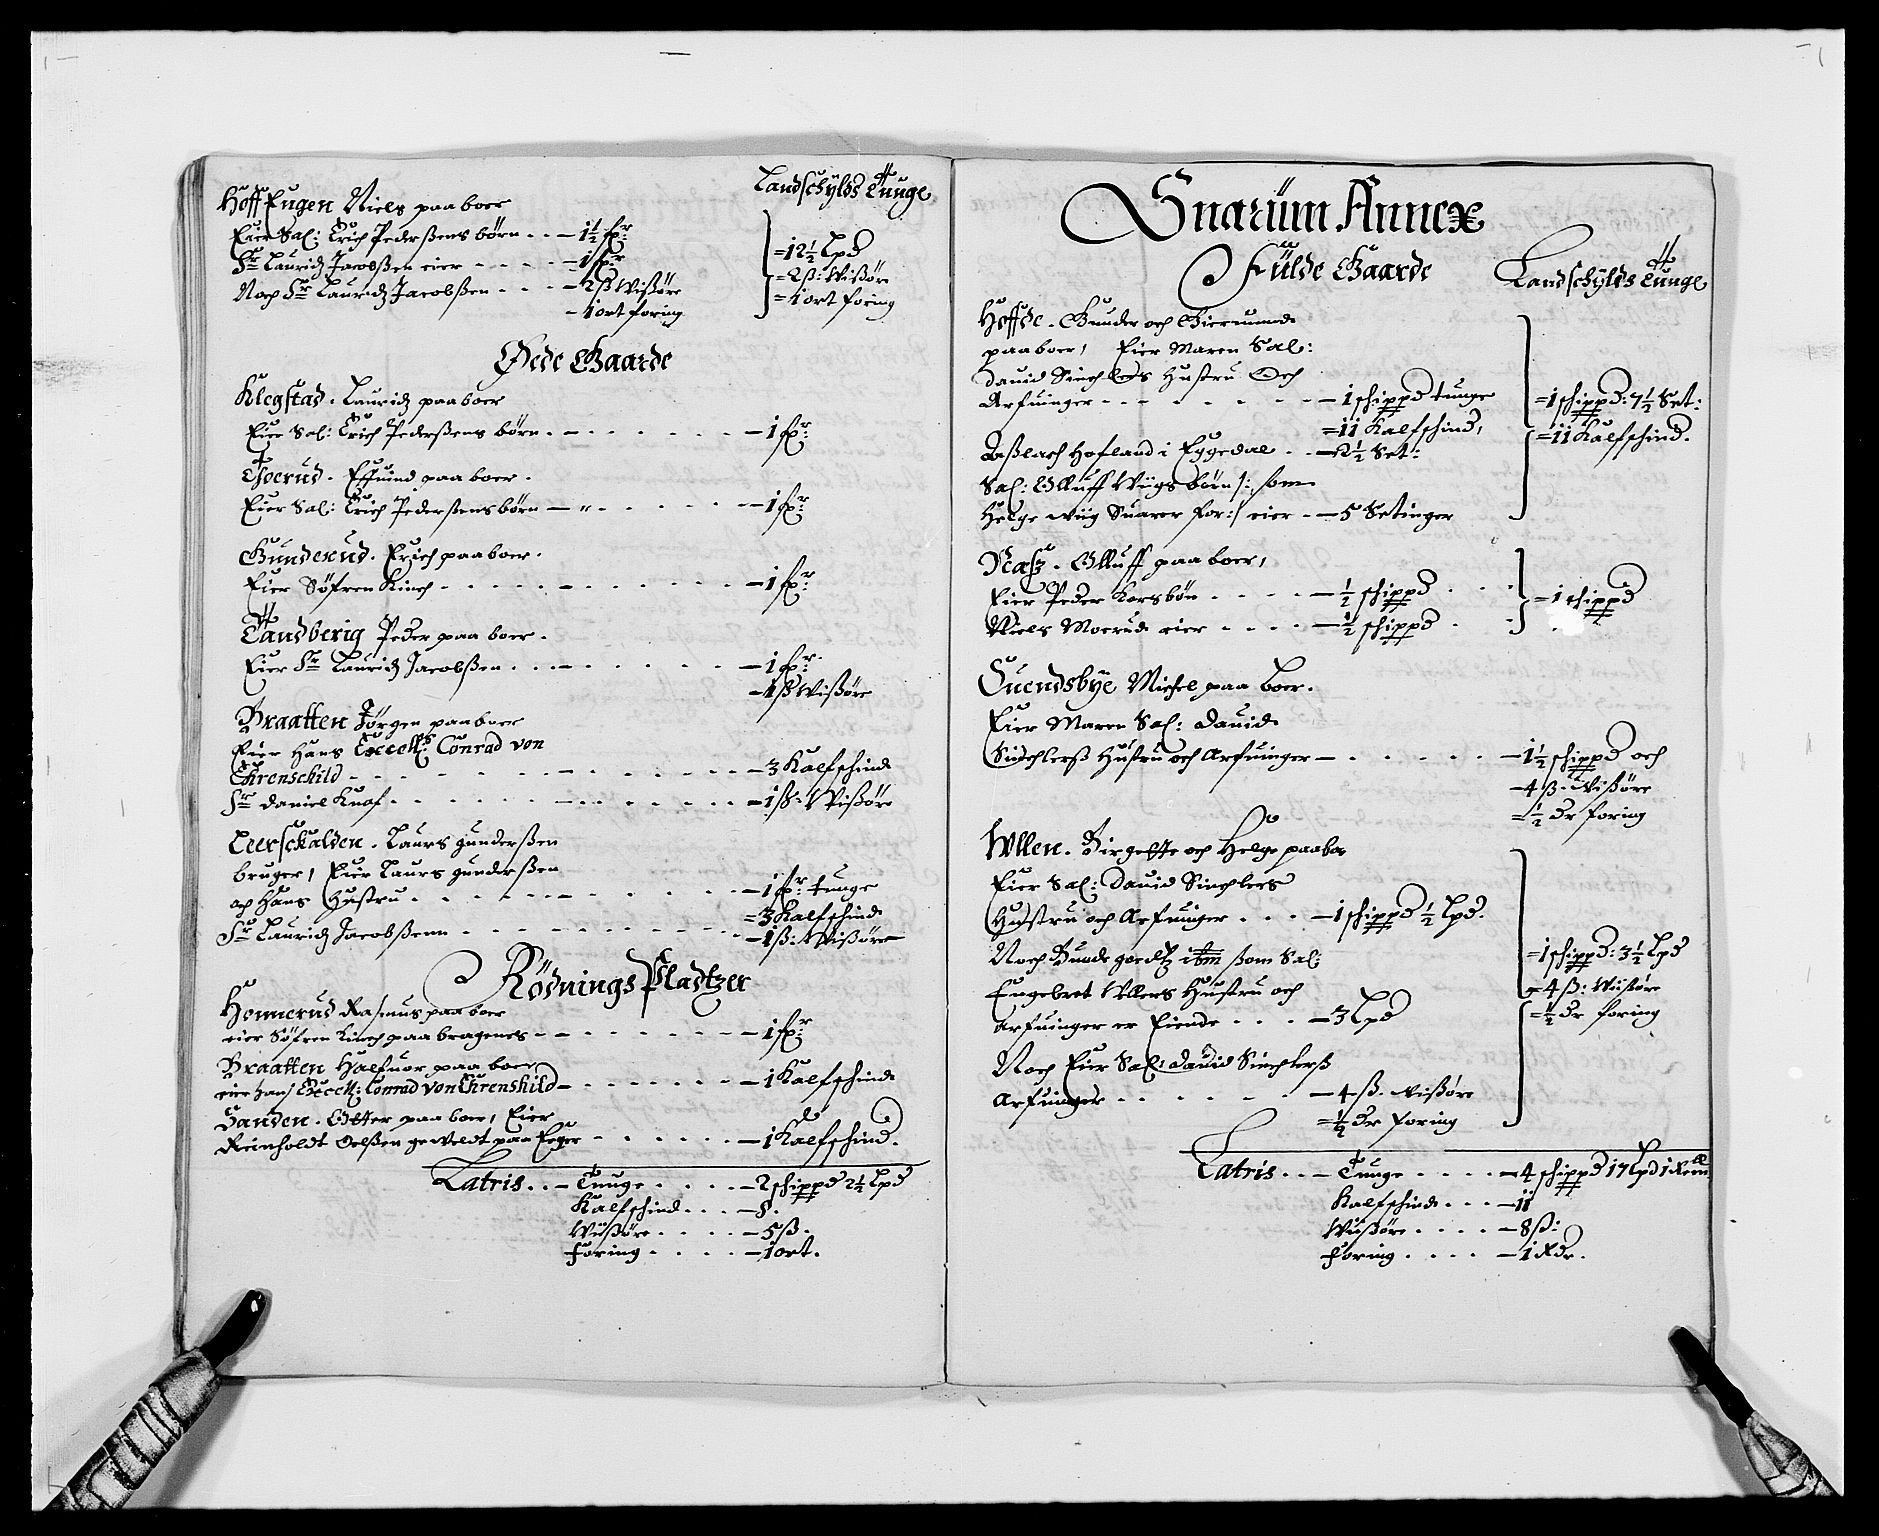 Landschylds Tunge
Hoff Eugen Niels paaboer
Eier Sal: Erich Pederßens börn . . – 1½ fxr:
Sr Lauridz Jacobßen eier - - - - – 1 fxr:
Noch Sr Lauridz Jacobßen - - - – 2 ß Wißöre
– 1 ort foring
= 12½ Lpd
= 2 ß: Wißöre
= 1 ort foring
Øede Gaarde
Klegstad . Lauridz paaboer
Eier Sal: Erich Pederßens börn . – 1 fxr:
Toerud . Effuind paaboer .
Eier Sal: Erich Pederßens börn – 1 fxr:
Gunderud . Erich paaboer .
Eier Söfren Kinch - - - – 1 fxr:
Tandberig Peder paa boer .
Eier Sr Lauridz Jacobßen . . . – 1 fxr:
– 4 ß Wißöre
Braatten Jörgen paaboer
Eier Hans Excell: Conrad von
Ehrenschild - - - – 3 Kalfschind
Sr Daniel Knof . . . – 1 ß: Wißöre
Leerschalden . Laurs Gunderßen
bruger, Eier Laurs Gunderßen
och Hans Hustru . . . – 1 fxr: tunge
= 3 Kalfschind
Sr Lauridz Jacobßenn - - - – 1 ß: Wißöre
Rödnings Pladtzer
Honnerud Rasmus paaboer
eier Söfren Kinch paa bragenes – 1 fxr:
Braatten Halfuor paa boer
eier hans Excell: Conrad von Ehrenskild – 1 Kalfschind
Sanden . Otter paa boer, Eier
Reinholdt Oelßen geweldt paa Eger - – 1 Kalfschind .
Latris . . – Tunge . . . . – 2 schippd 2½ Lpd
Kalfschind . . . – 8 .
Wißöre . . . . – 5 ß .
foring . . . . – 1 ort .
Snarüm Annex
Fülde Gaarde
Landschylds Tunge
Hoffde . Gunder och Gierumnd
paaboer, Eier Maren Sal:
Dauid Sinchlers Hustru Och
Arfuinger - - - – 1 schippd tunge
= 11 Kalfschind,
Aßlach Hofland i Eggedal . . – 2½ Set:
Sal: Olluff Wiigs börn /: som
Helge wiig Suarer for :/ eier . – 5 Setinger
= 1 schippd: 7½ Set:
= 11 Kalfschind .
Næß . Olluff paa boer,
Eier Peder Korsbön . . . . – ½ schippd
Niels Moerud eier . . . . – ½ schippd
= 1 schippd
Suendsbye Michel paa boer .
Eier Maren Sal: Dauid
Sinchlerß Hustru och Arfuinger – . . . – 1½ schippd och
– 4 ß . Wißöre
= ½ Dr foring
Wllen . Birgette och Helge paaboe
Eier Sal: Dauid Sinchlers
Hustru och Arfuinger . . . – 1 schippd ½ Lpd .
Noch Bunde goedtz item ßom Sal:
Engebret Wllers Hustru och
Arfuinger er Eiende . . . – 3 Lpd
Noch Eier Sal: Dauid Sinchlerß
Arfuinger . . . . – 4 ß . Wißöre
= ½ Dr foring
= 1 schippd: 3½ Lpd
= 4 ß: Wißöre
= ½ Dr foring
Latris . . – Tunge . . . . – 4 schippd 17 Lpd 1 Rem
Kalfschind . . . – 11
Wißöre . . . . – 8 ß:
foring . . . . – 1 Rdr .